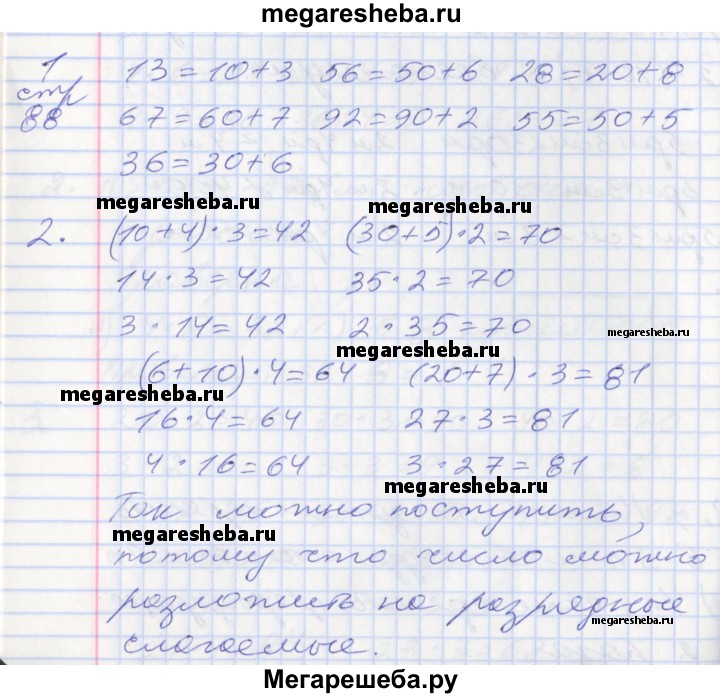 megaresheba.ru
1 13=10+3 56=50+6 28=20+8
стр
88 67=60+7 92=90+2 55=50+5
36=30+6
megaresheba.ru
2. (10+4)·3=42 (30+5)·2=70
14·3=42 35·2=70
3·14=42 2·35=70
megaresheba.ru
megaresheba.ru
(6+10)·4=64 (20+7)·3=81
megaresheba.ru
16·4=64 27·3=81
4·16=64 3·27=81
megaresheba.ru
Так можно поступить,
megaresheba.ru
потому что число можно
разложить на разрядные
megaresheba.ru
слагаемые.
Мегарешеба.ру